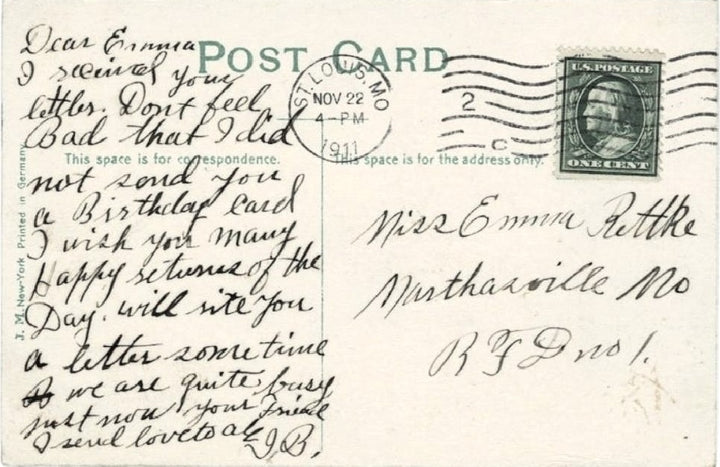 POST CARD
Dear Emma
I received your
letter. Dont feel
Bad that I did
not send you
a Birthday Card
I wish you many
happy returns of the
Day. will rite you
a letter sometime
we are quite busy
just now your Friend
I send love to all
J.B.
This space is for correspondence.
This space is for the address only.
J. M. New-York Printed in Germany
ST. LOUIS, MO
NOV 22
4-PM
1911
2
C
U.S. POSTAGE
ONE CENT
Miss Emma Rettke
Marthasville Mo
R F D no 1.